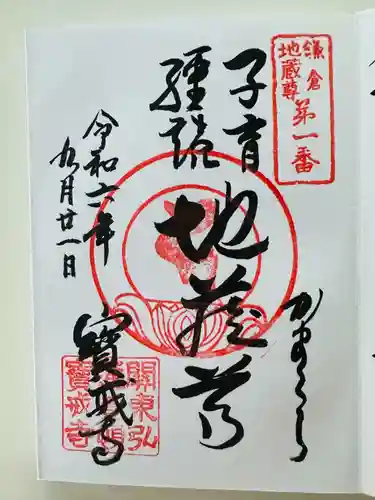 鎌倉
地蔵尊
第一番
子育
経読
地蔵尊
かまくら
令和六年
九月廿一日
寳戒寺
關東弘
寳戒寺